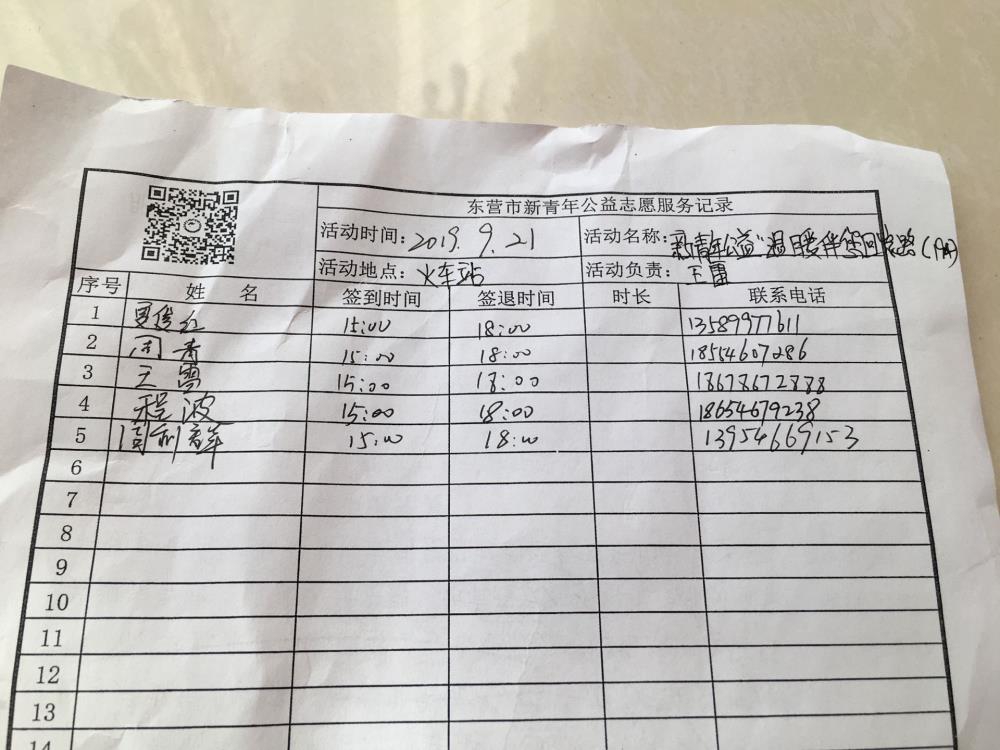 东营市新青年公益志愿服务记录
活动时间：2019.9.21 活动名称：新青年公益"温暖伴您回家路(PM)
活动地点：火车站 活动负责：王雷
序号 姓名 签到时间 签退时间 时长 联系电话
1 夏俊红 15:00 18:00 13589977611
2 周青 15:00 18:00 18554607286
3 王雷 15:00 18:00 18678672888
4 程波 15:00 18:00 18654679238
5 利 15:00 18:00 13954669153
6
7
8
9
10
11
12
13
14